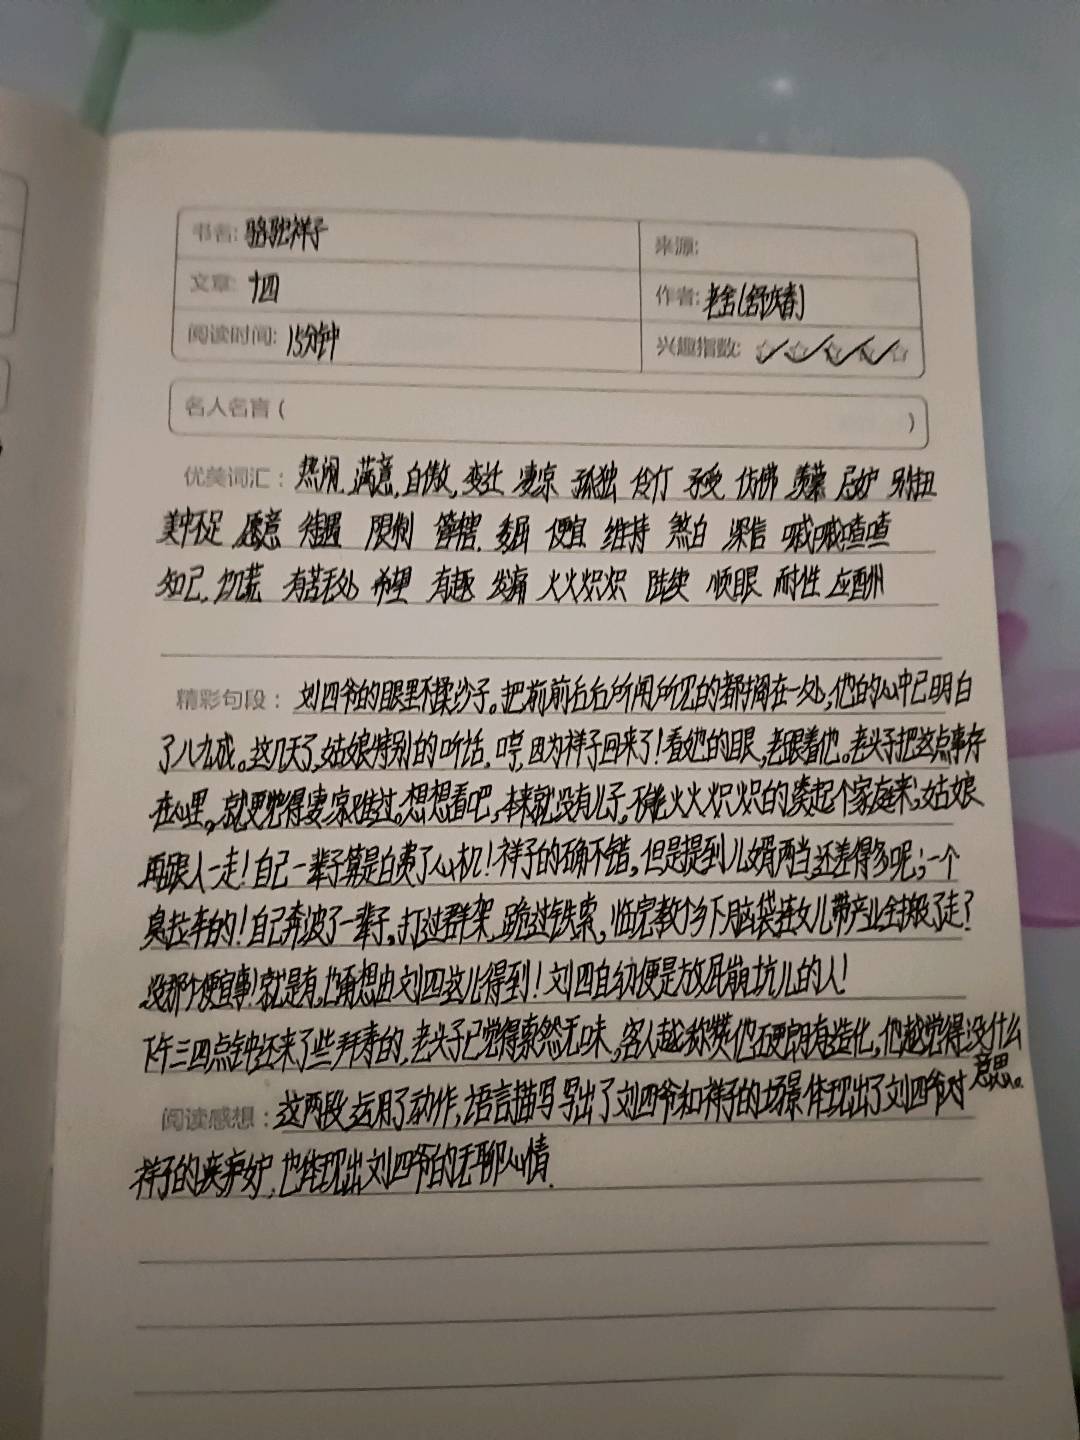 书名: 骆驼祥子
来源:
文章: 十四
作者: 老舍(舒庆春)
阅读时间: 15分钟
兴趣指数: ☆☆☆☆☆
名人名言 ( )
优美词汇: 热闹. 满意. 自傲. 变迁 凄凉 孤独 伶仃 承受 仿佛 羡慕 忌妒 别扭
美中不足 愿意 待遇 限制 管辖. 委屈 便宜 维持 煞白 深信 喊喊喳喳
知己. 饥荒 有苦无处 希望 有趣 发痛 火火炽炽 陆续 顺眼 耐性 应酬
精彩句段: 刘四爷的眼里不揉沙子。把前前后后所闻所见的都搁在一处,他的心中已明白
了八九成。这几天了,姑娘特别的听话. 哼,因为祥子回来了!看她的眼,老跟着他。老头子把这点事存
在心里,就更觉得凄凉难过。想想看吧,本来就没有儿子.不能火火炽炽的凑起个家庭来;姑娘
再跟人一走!自己一辈子算是白费了心机!祥子的确不错,但是提到儿婿两当还差得多呢;一个
臭拉车的!自己奔波了一辈子,打过群架,跪过铁索,临完教个乡下脑袋连女儿带产业全搬了走?
没那个便宜事!就是有,也甭想由刘四这儿得到!刘四自幼便是放屁崩坑儿的人!
下午三四点钟还来了些拜寿的,老头子已觉得索然无味,客人越称赞他硬朗有造化,他越觉得没什么
意思。
阅读感想: 这两段运用了动作,语言描写写出了刘四爷和祥子的场景体现出了刘四爷对
祥子的嫉妒,也体现出刘四爷的无聊心情.